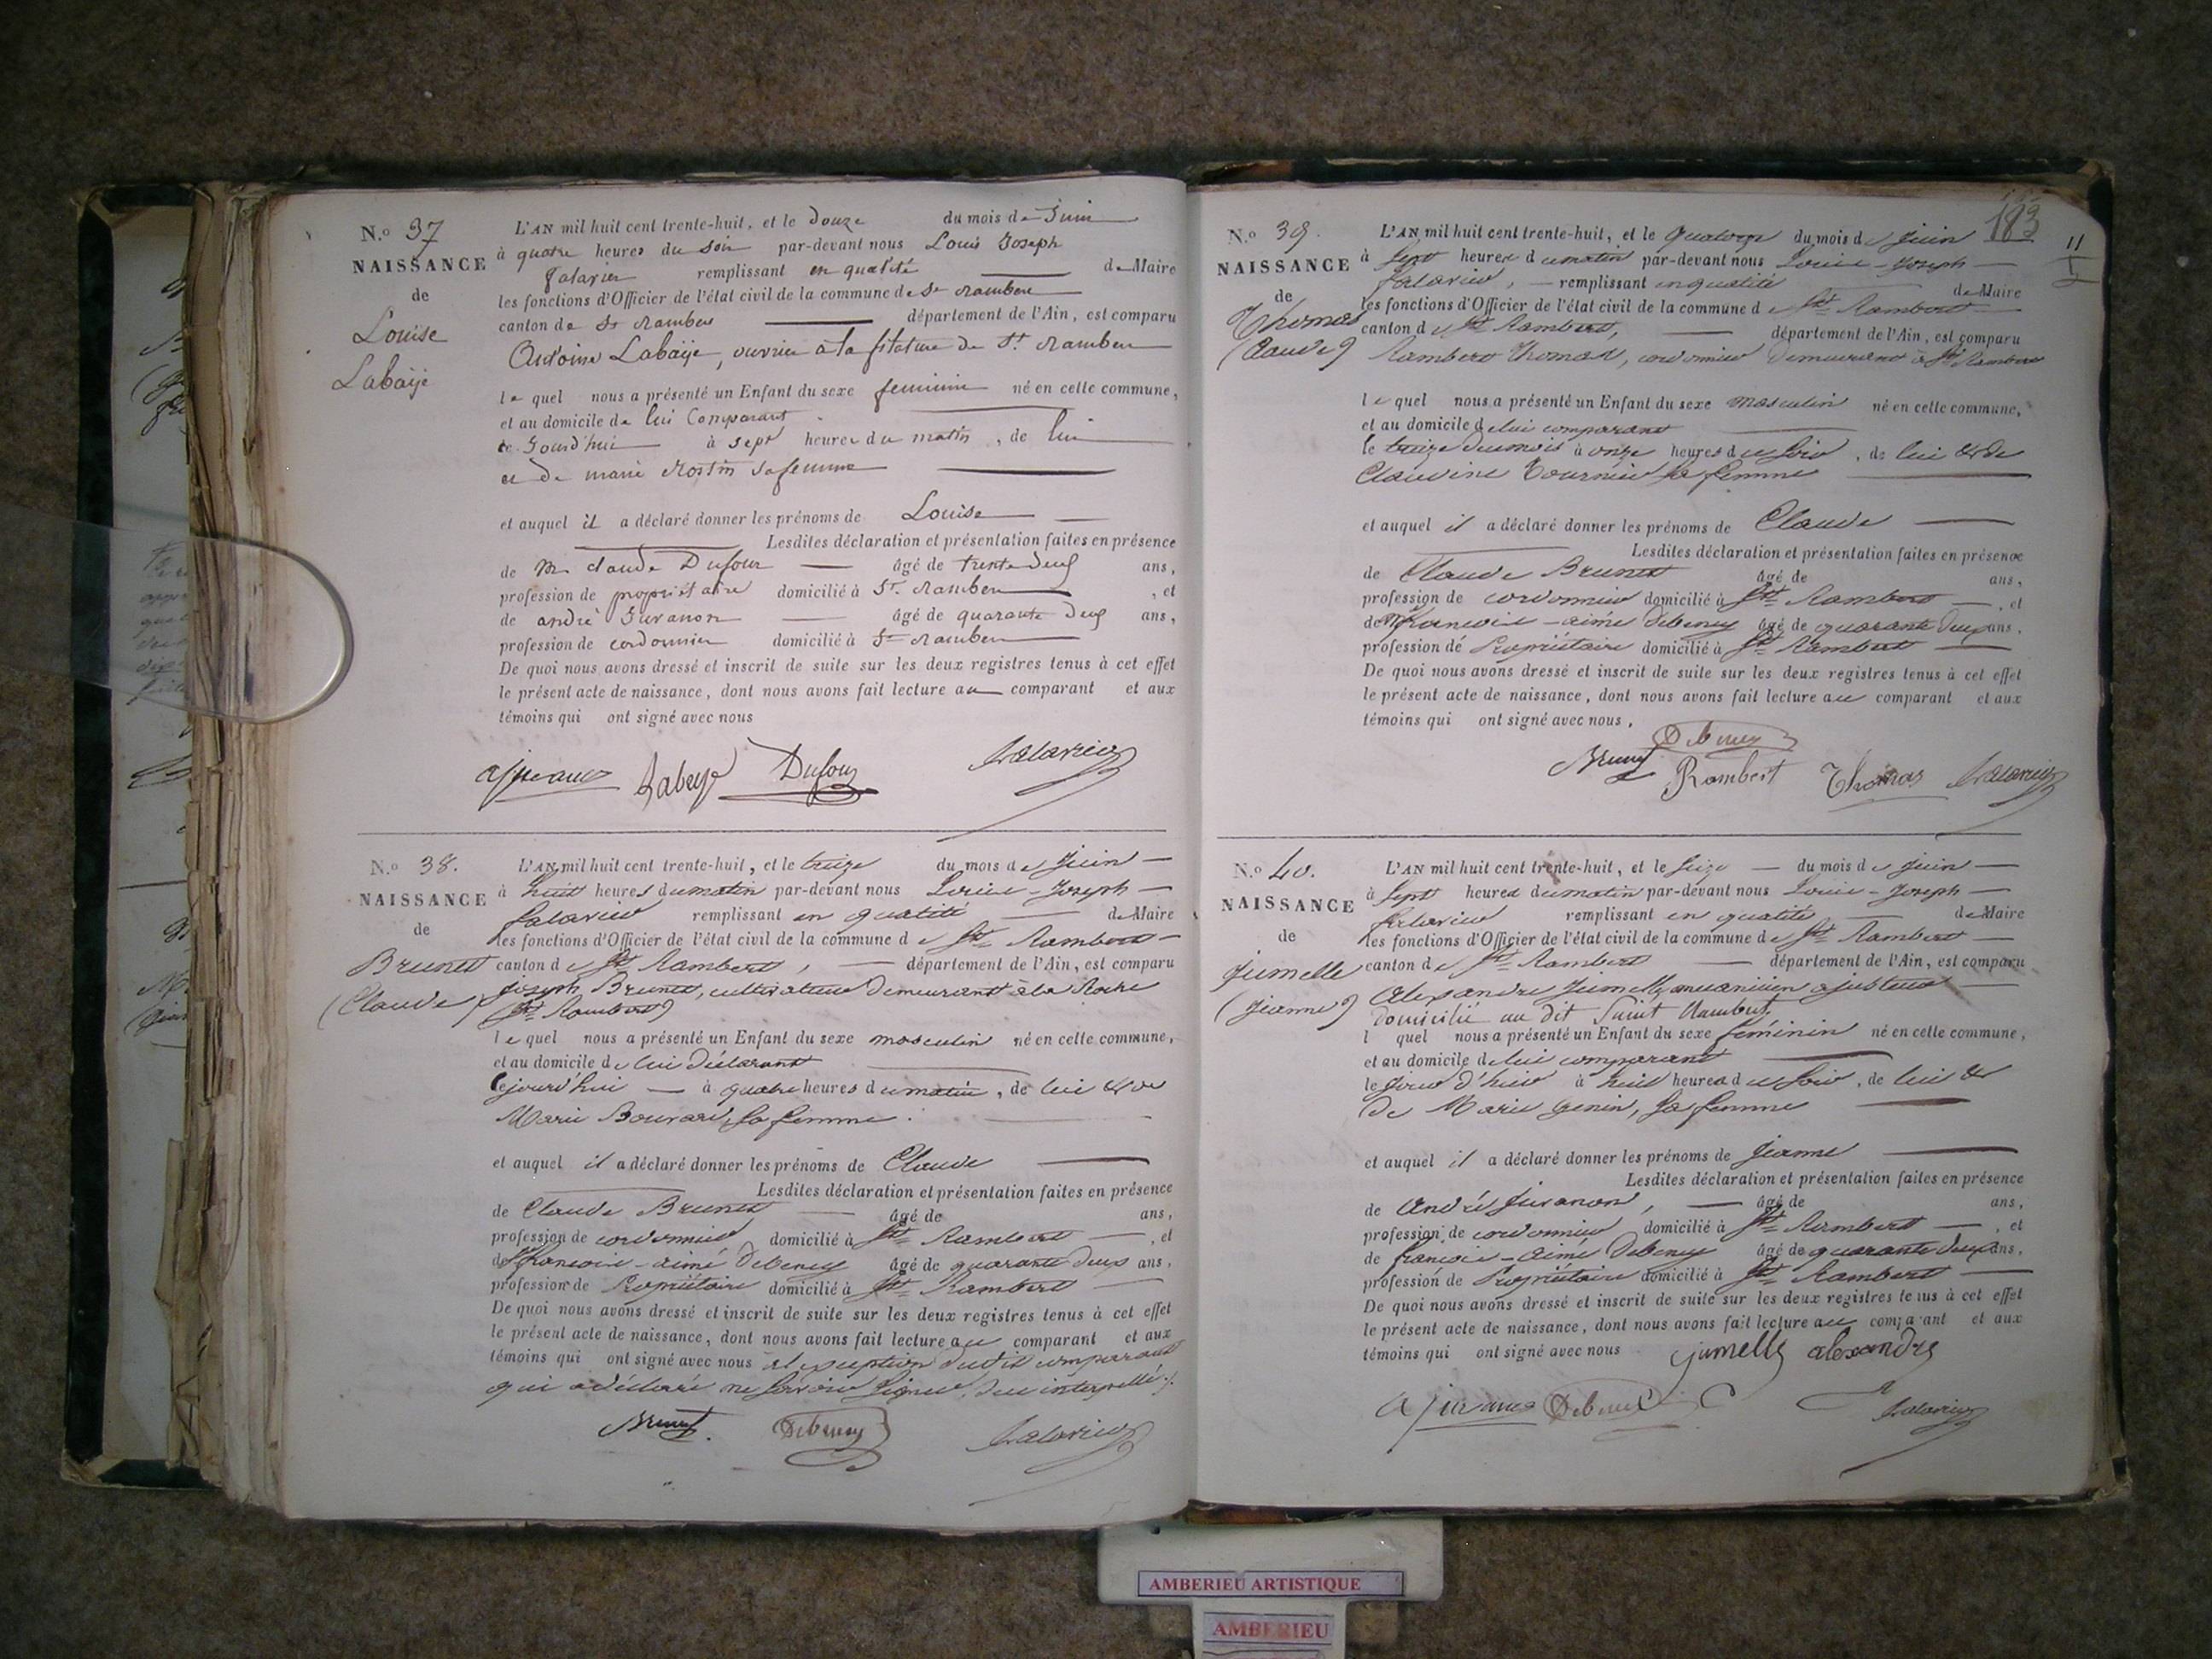 N.o 37
NAISSANCE
de
Louise
Labaÿe
L'AN mil huit cent trente-huit, et le douze du mois de Juin
à quatre heures du soir par-devant nous Louis Joseph
remplissant en qualité de Maire
les fonctions d'Officier de l'état civil de la commune de St Rambert
canton de St Rambert département de l'Ain, est comparu
Antoine Labaÿe, ouvrier à la filature de St. Rambert
le quel nous a présenté un Enfant du sexe feminin né en cette commune,
et au domicile de lui Comparant
ce Jourd'hui à sept heures du matin, de lui
et de marie sa femme
et auquel il a déclaré donner les prénoms de Louise
Lesdites déclaration et présentation faites en présence
de M. claude Dufour âgé de trente deux ans,
profession de propriétaire domicilié à St. Rambert, et
de andré Juvanon âgé de quarante deux ans,
profession de cordonnier domicilié à St Rambert
De quoi nous avons dressé et inscrit de suite sur les deux registres tenus à cet effet
le présent acte de naissance, dont nous avons fait lecture au comparant et aux
témoins qui ont signé avec nous
Labeye Dufour
N.o 38.
NAISSANCE
de
Brunet
(Claude)
L'AN mil huit cent trente-huit, et le treize du mois de Juin
à huit heures du matin par-devant nous Louis-Joseph
remplissant en qualité de Maire
les fonctions d'Officier de l'état civil de la commune de St. Rambert
canton de St. Rambert, département de l'Ain, est comparu
Joseph Brunet, cultivateur demeurant à la Roche
(St. Rambert)
le quel nous a présenté un Enfant du sexe masculin né en cette commune,
et au domicile de lui déclarant
cejourd'hui à quatre heures du matin, de lui et de
Marie Bouvard, sa femme.
et auquel il a déclaré donner les prénoms de Claude
Lesdites déclaration et présentation faites en présence
de Claude Brunet âgé de ans,
profession de cordonnier domicilié à St. Rambert, et
de françois-aimé Debeney âgé de quarante deux ans,
profession de Propriétaire domicilié à St. Rambert
De quoi nous avons dressé et inscrit de suite sur les deux registres tenus à cet effet
le présent acte de naissance, dont nous avons fait lecture au comparant et aux
témoins qui ont signé avec nous à l'exception dudit comparant
qui a déclaré ne savoir signer, de ce interpellé.
Brunet Debeney
183
11
5
N.o 39.
NAISSANCE
de
Thomas
(Claude)
L'AN mil huit cent trente-huit, et le quatorze du mois de Juin
à sept heures du matin par-devant nous Louis-Joseph
remplissant en qualité de Maire
les fonctions d'Officier de l'état civil de la commune de St. Rambert
canton de St. Rambert, département de l'Ain, est comparu
Rambert Thomas, cordonnier demeurant à St. Rambert
le quel nous a présenté un Enfant du sexe masculin né en cette commune,
et au domicile de lui comparant
le treize du mois à onze heures du soir, de lui et de
Claudine Tournier sa femme
et auquel il a déclaré donner les prénoms de Claude
Lesdites déclaration et présentation faites en présence
de Claude Brunet âgé de ans,
profession de cordonnier domicilié à St. Rambert, et
de françois-aimé Debeney âgé de quarante deux ans,
profession de Propriétaire domicilié à St. Rambert
De quoi nous avons dressé et inscrit de suite sur les deux registres tenus à cet effet
le présent acte de naissance, dont nous avons fait lecture au comparant et aux
témoins qui ont signé avec nous.
Debeney
Brunet Rambert Thomas
N.o 40.
NAISSANCE
de
Jumelle
(Jeanne)
L'AN mil huit cent trente-huit, et le seize du mois de juin
à sept heures du matin par-devant nous Louis-Joseph
remplissant en qualité de Maire
les fonctions d'Officier de l'état civil de la commune de St. Rambert
canton de St. Rambert département de l'Ain, est comparu
alexandre Jumelle, mécanicien ajusteur
domicilié au dit Saint Rambert,
l quel nous a présenté un Enfant du sexe féminin né en cette commune,
et au domicile de lui comparant
le jour d'hier à huit heures du soir, de lui et
de Marie genin, sa femme
et auquel il a déclaré donner les prénoms de jeanne
Lesdites déclaration et présentation faites en présence
de André Juvanon, âgé de ans,
profession de cordonnier domicilié à St. Rambert, et
de françois-aimé Debeney âgé de quarante deux ans,
profession de Propriétaire domicilié à St. Rambert
De quoi nous avons dressé et inscrit de suite sur les deux registres tenus à cet effet
le présent acte de naissance, dont nous avons fait lecture au comparant et aux
témoins qui ont signé avec nous jumelle alexandre
Debeney
AMBERIEU ARTISTIQUE
AMBERIEU